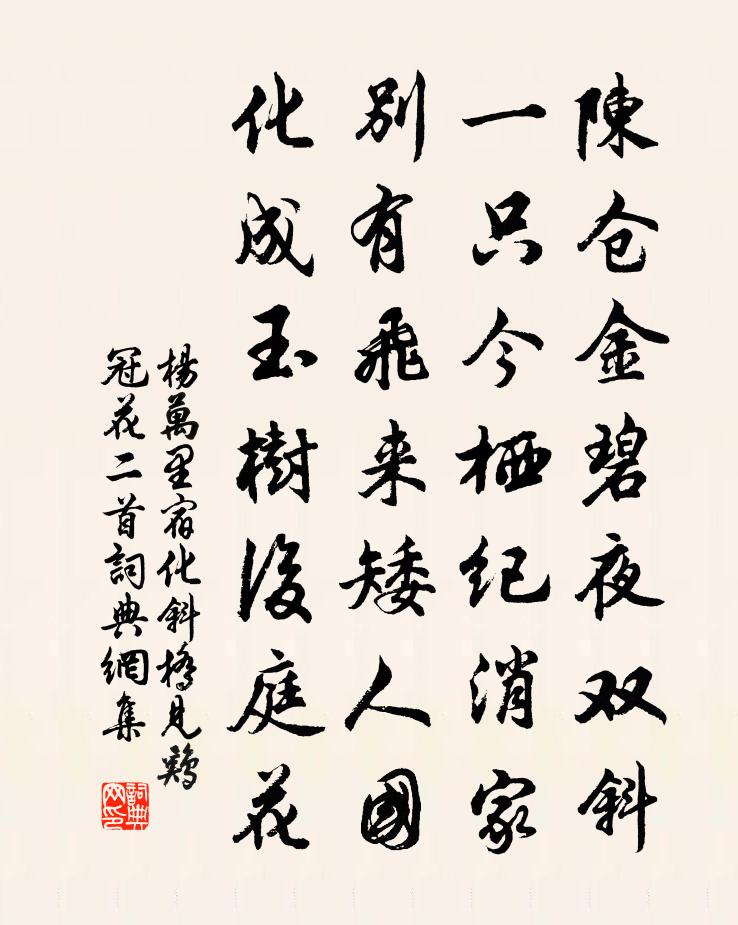 陳仓金碧夜双斜
一只今栖纪消家
别有飛来矮人國
化成玉樹後庭花
楊萬里宿化斜橋見鷄
冠花二首詞典網集
詞典网印